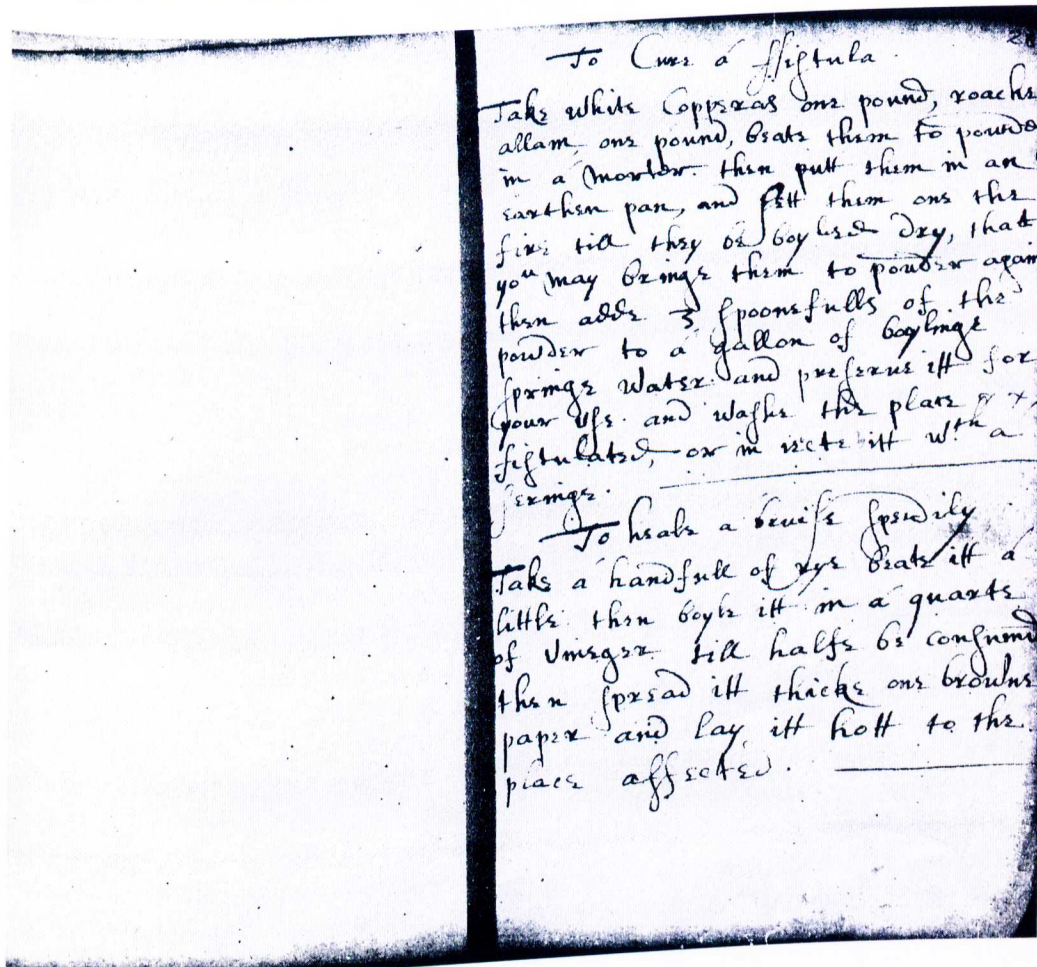 To Cure a ffistula
Take white Copperas one pound, roache
allam, one pound, beate them to powde
in a Morter. then putt them in an
earthen pan, and sett them one the
fire till they be boyled dry, that
you may bringe them to powder again
then adde 3 spoonefulls of the
powder to a gallon of boylinge
springe water. and preserue itt for
your vse. and washe the place
fistulated, or in iecte itt wth a
seringe.
To heale a bruise speedily
Take a handfull of rye beate itt a
little then boyle itt in a quarte
of Vineger till halfe be consumd
then spread itt thicke one browne
paper and lay itt hott to the
place affected